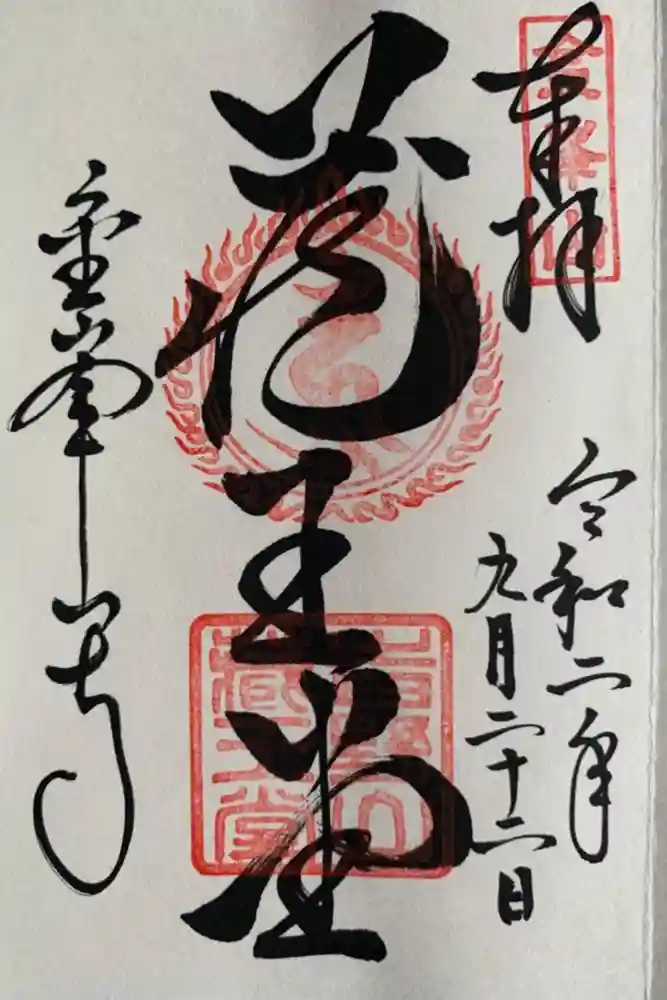 奉拝
金峯山
令和二年
九月二十二日
蔵王堂
金峯山寺